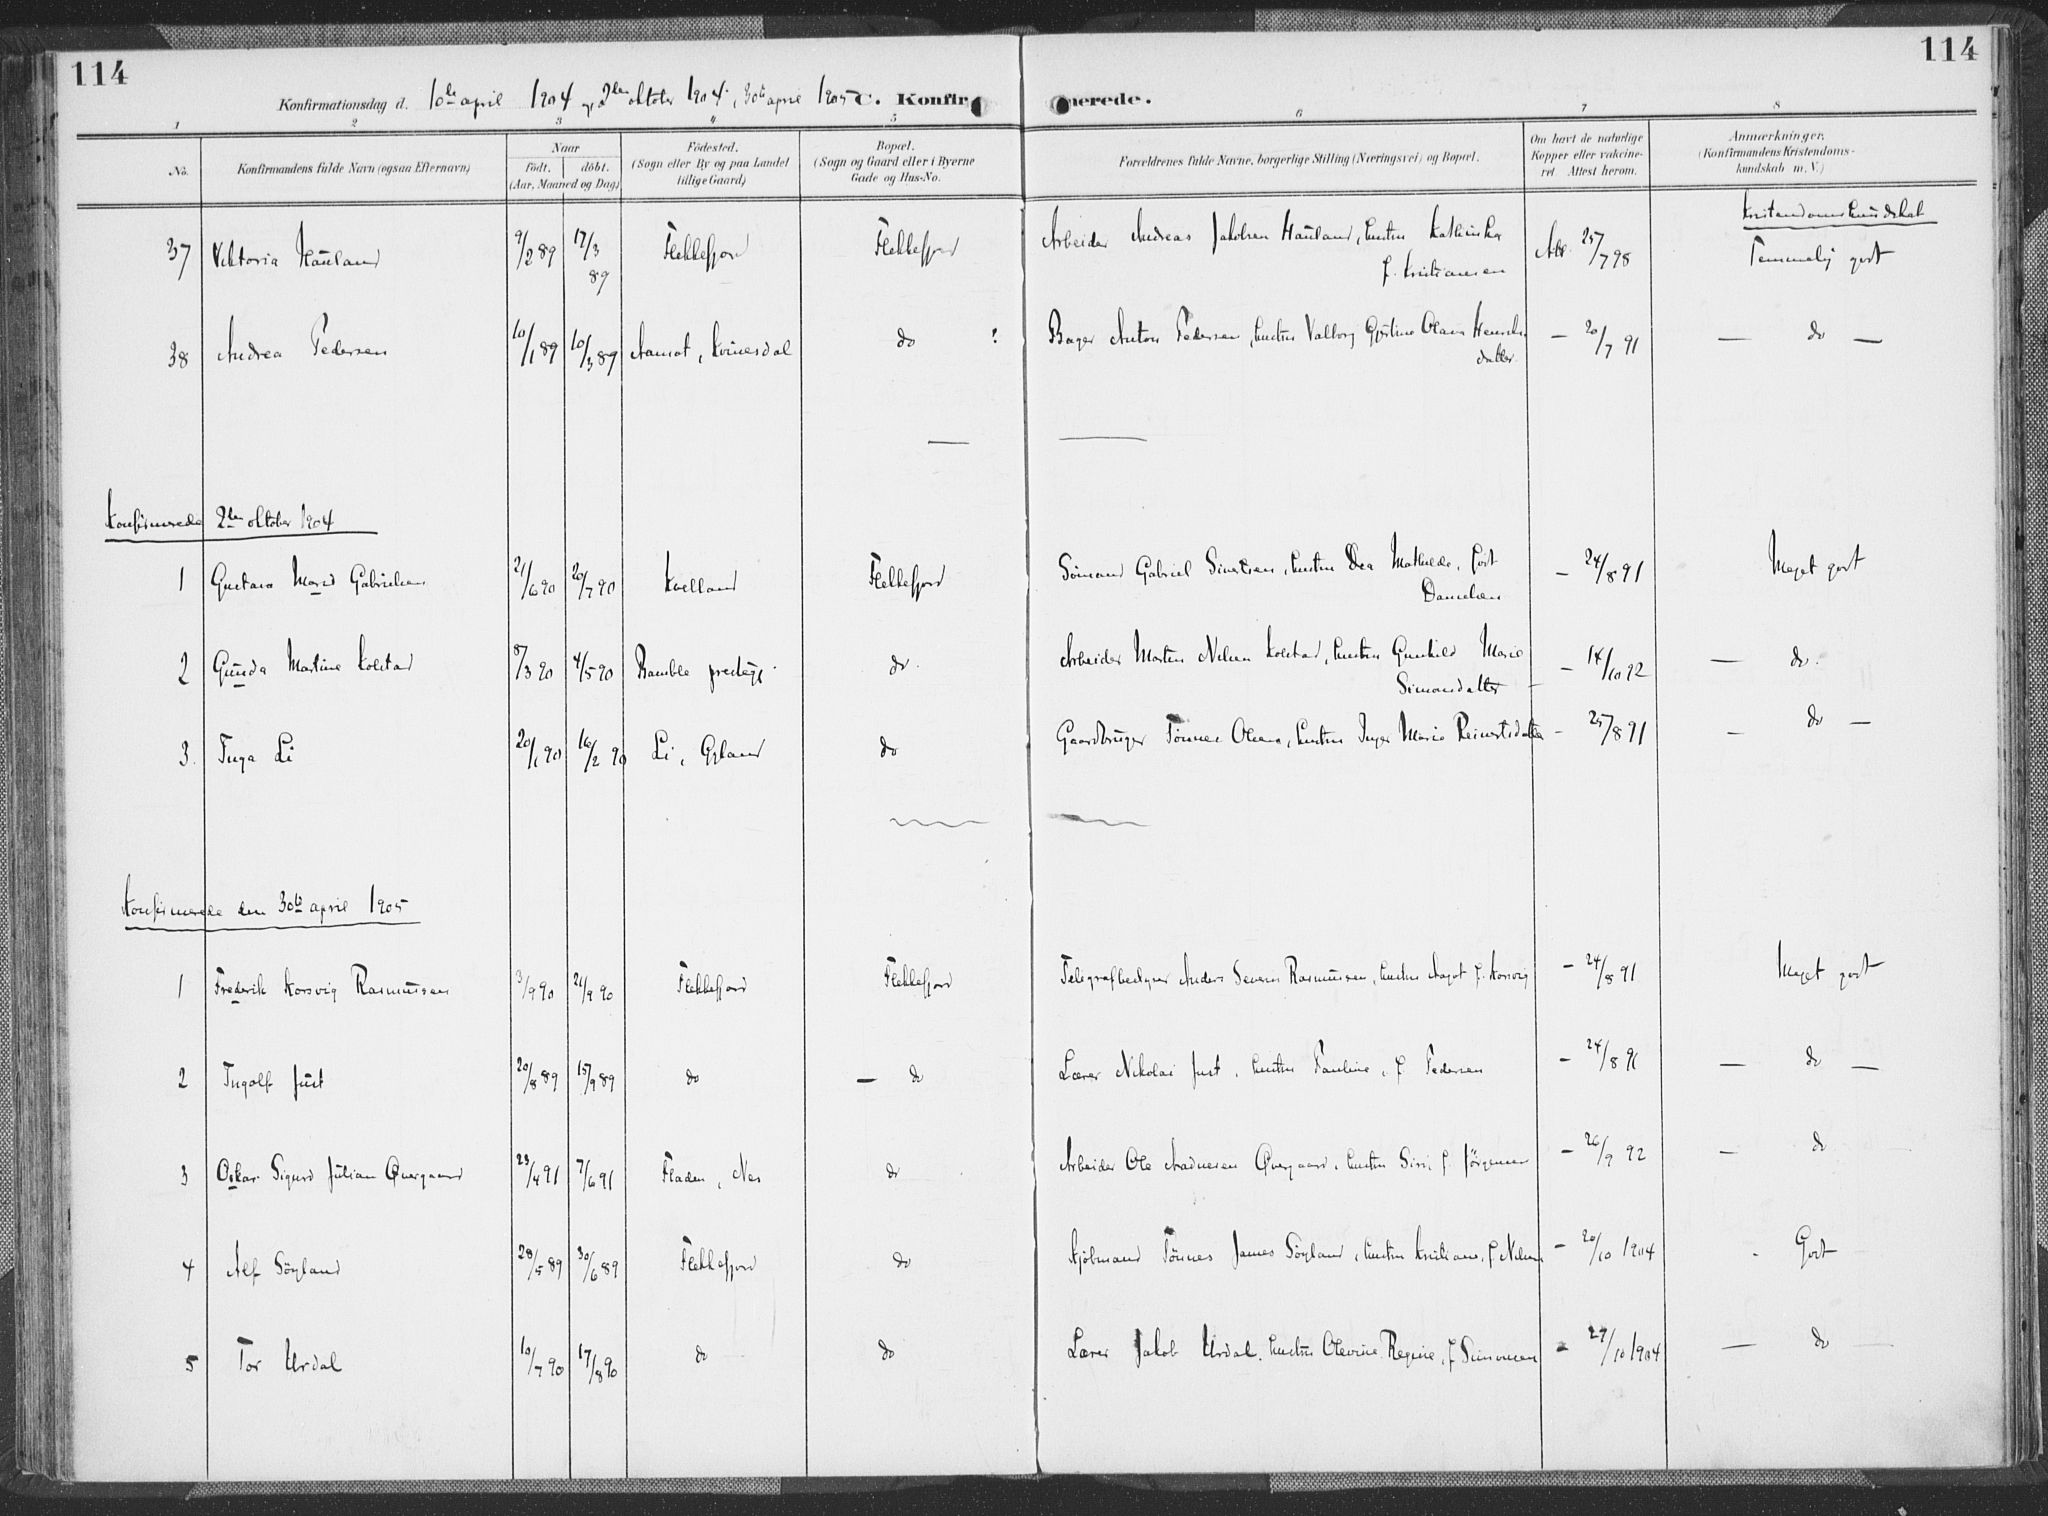 114
114
Konfirmationsdag d. 10de april 1904 og 2den oktober 1904, 30te april 1905 C. Konfirmerede.
1 2 3 4 5 6 7 8
No.
Konfirmandens fulde Navn (ogsaa Efternavn)
Naar
født. døbt.
(Aar, Maaned og Dag)
Födested.
(Sogn eller By og paa Landet
tillige Gaard)
Bopæl.
(Sogn og Gaard eller i Byerne
Gade og Hus-No.
Forældrenes fulde Navne, borgerlige Stilling (Næringsvei) og Bopæl.
Om havt de naturlige
Kopper eller vakcine-
ret Attest herom.
Anmærkninger,
(Konfirmandens Kristendoms-
kundskab m. V.)
Kristendomskundskab
37 Viktoria Hauland 9/2 89 17/3 89 Flekkefjord Flekkefjord Arbeider Andreas Jakobsen Hauland, hustru Kathinka
f. Kristiansen Att. 25/7 98 Temmelig godt
38 Andrea Pedersen 10/1 89 10/3 89 Aamot, Kvinesdal do ? Bager Anton Pedersen, hustru Valborg Gjertine Olava Henriks
datter. — 20/7 91 — do —
Konfirmerede 2den oktober 1904
1 Gustava Marie Gabrielsen 21/6 90 20/7 90 Kvelland Flekkefjord Sömand Gabriel Sivertsen, hustru Dea Mathilde, født
Danielsen – 24/8 91 Meget godt
2 Gunda Martine Kolstad 8/3 90 4/5 90 Bamble prestegj. do. Arbeider Morten Nilsen Kolstad, hustru Gunhild Marie
Simonsdatter – – 14/10 92 — do.
3. Inga Li 20/1 90 16/2 90 Li, Gyland do Gaardbruger Tönnes Olsen, hustru Inger Marie Reinertsdatter – 25/8 91 – do –
Konfirmerede den 30te april 1905
1 Frederik Korsvig Rasmussen 3/9 90 21/9 90 Flekkefjord Flekkefjord Telegrafbestyrer Anders Severin Rasmussen, hustru Aagot f. Korsvig – 24/8 91 Meget godt
2 Ingolf Just 20/8 89 15/9 89 do — do Lærer Nikolai Just, hustru Pauline, f. Pedersen – 24/8 91 — do —
3 Oskar Sigurd Julian Øvergaard 23/4 91 7/6 91 Fladen, Nes do Arbeider Ole Andersen Øvergaard, hustru Siri, f. Jörgensen – 26/9 92 – do
4 Alf Söyland 28/5 89 30/6 89 Flekkefjord do Kjöbmand Tönnes James Söyland, hustru Kristiane, f Nilsen – 20/10 1904 - Godt
5 Tor Urdal 10/7 90 17/8 90 do do Lærer Jakob Urdal, hustru Olevine Regine, f Simonsen – 27/10 1904 — do —